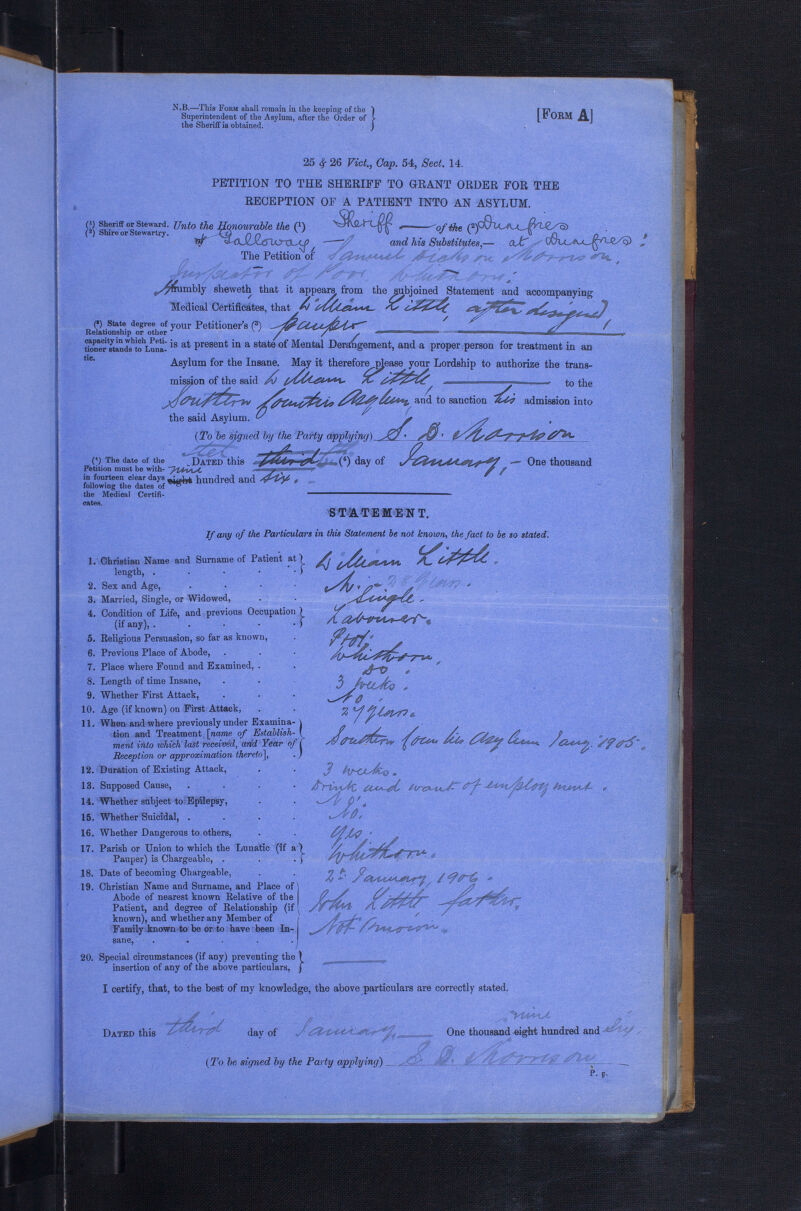 N.B.—This Form shall remain in the keeping of the
Superintendent of the Asylum, after the Order of
the Sheriff is obtained.
[Form A]
25 & 26 Vict., Cap. 54, Sect. 14.
PETITION TO THE SHERIFF TO GRANT ORDER FOR THE
RECEPTION OF A PATIENT INTO AN ASYLUM.
(¹) Sheriff or Steward.
(²) Shire or Stewartry.
Unto the Honourable the (¹) Sheriff — of the (²) Dumfries
& Galloway, — and his Substitutes,— at Dumfries:
The Petition of Samuel Dickson Morrison,
Inspector of Poor Whithorn;
Humbly sheweth that it appears from the subjoined Statement and accompanying
Medical Certificates, that William Little, after designed,
(³) State degree of
Relationship or other
capacity in which Peti-
tioner stands to Luna-
tic.
your Petitioner's (³) pauper
is at present in a state of Mental Derangement, and a proper person for treatment in an
Asylum for the Insane. May it therefore please your Lordship to authorize the trans-
mission of the said William Little, — to the
Southern Counties Asylum, and to sanction his admission into
the said Asylum.
(To be signed by the Party applying) S. D. Morrison
(⁴) The date of the
Petition must be with-
in fourteen clear days
following the dates of
the Medical Certifi-
cates.
Dated this third (⁴) day of January, - One thousand
nine
eight hundred and six.
STATEMENT.
If any of the Particulars in this Statement be not known, the fact to be so stated.
1. Christian Name and Surname of Patient at
length, . William Little.
2. Sex and Age, M. - 28 Years.
3. Married, Single, or Widowed, Single.
4. Condition of Life, and previous Occupation
(if any), . Labourer.
5. Religious Persuasion, so far as known, Prot.
6. Previous Place of Abode, Whithorn,
7. Place where Found and Examined, . Do
8. Length of time Insane, 3 weeks.
9. Whether First Attack, No
10. Age (if known) on First Attack, 27 years.
11. When and where previously under Examina-
tion and Treatment [name of Establish-
ment into which last received, and Year of
Reception or approximation thereto], Southern Counties Asylum Jany. 1905.
12. Duration of Existing Attack, 3 weeks.
13. Supposed Cause, Drink and want of employment.
14. Whether subject to Epilepsy, No.
15. Whether Suicidal, . No.
16. Whether Dangerous to others, Yes.
17. Parish or Union to which the Lunatic (if a
Pauper) is Chargeable, . Whithorn.
18. Date of becoming Chargeable, 2ⁿᵈ January, 1906.
19. Christian Name and Surname, and Place of
Abode of nearest known Relative of the
Patient, and degree of Relationship (if
known), and whether any Member of
Family known to be or to have been In-
sane,
John Little, father,
Not known.
20. Special circumstances (if any) preventing the
insertion of any of the above particulars,
I certify, that, to the best of my knowledge, the above particulars are correctly stated.
nine
Dated this third day of January — One thousand eight hundred and Six.
(To be signed by the Party applying) S. D. Morrison
P. p.